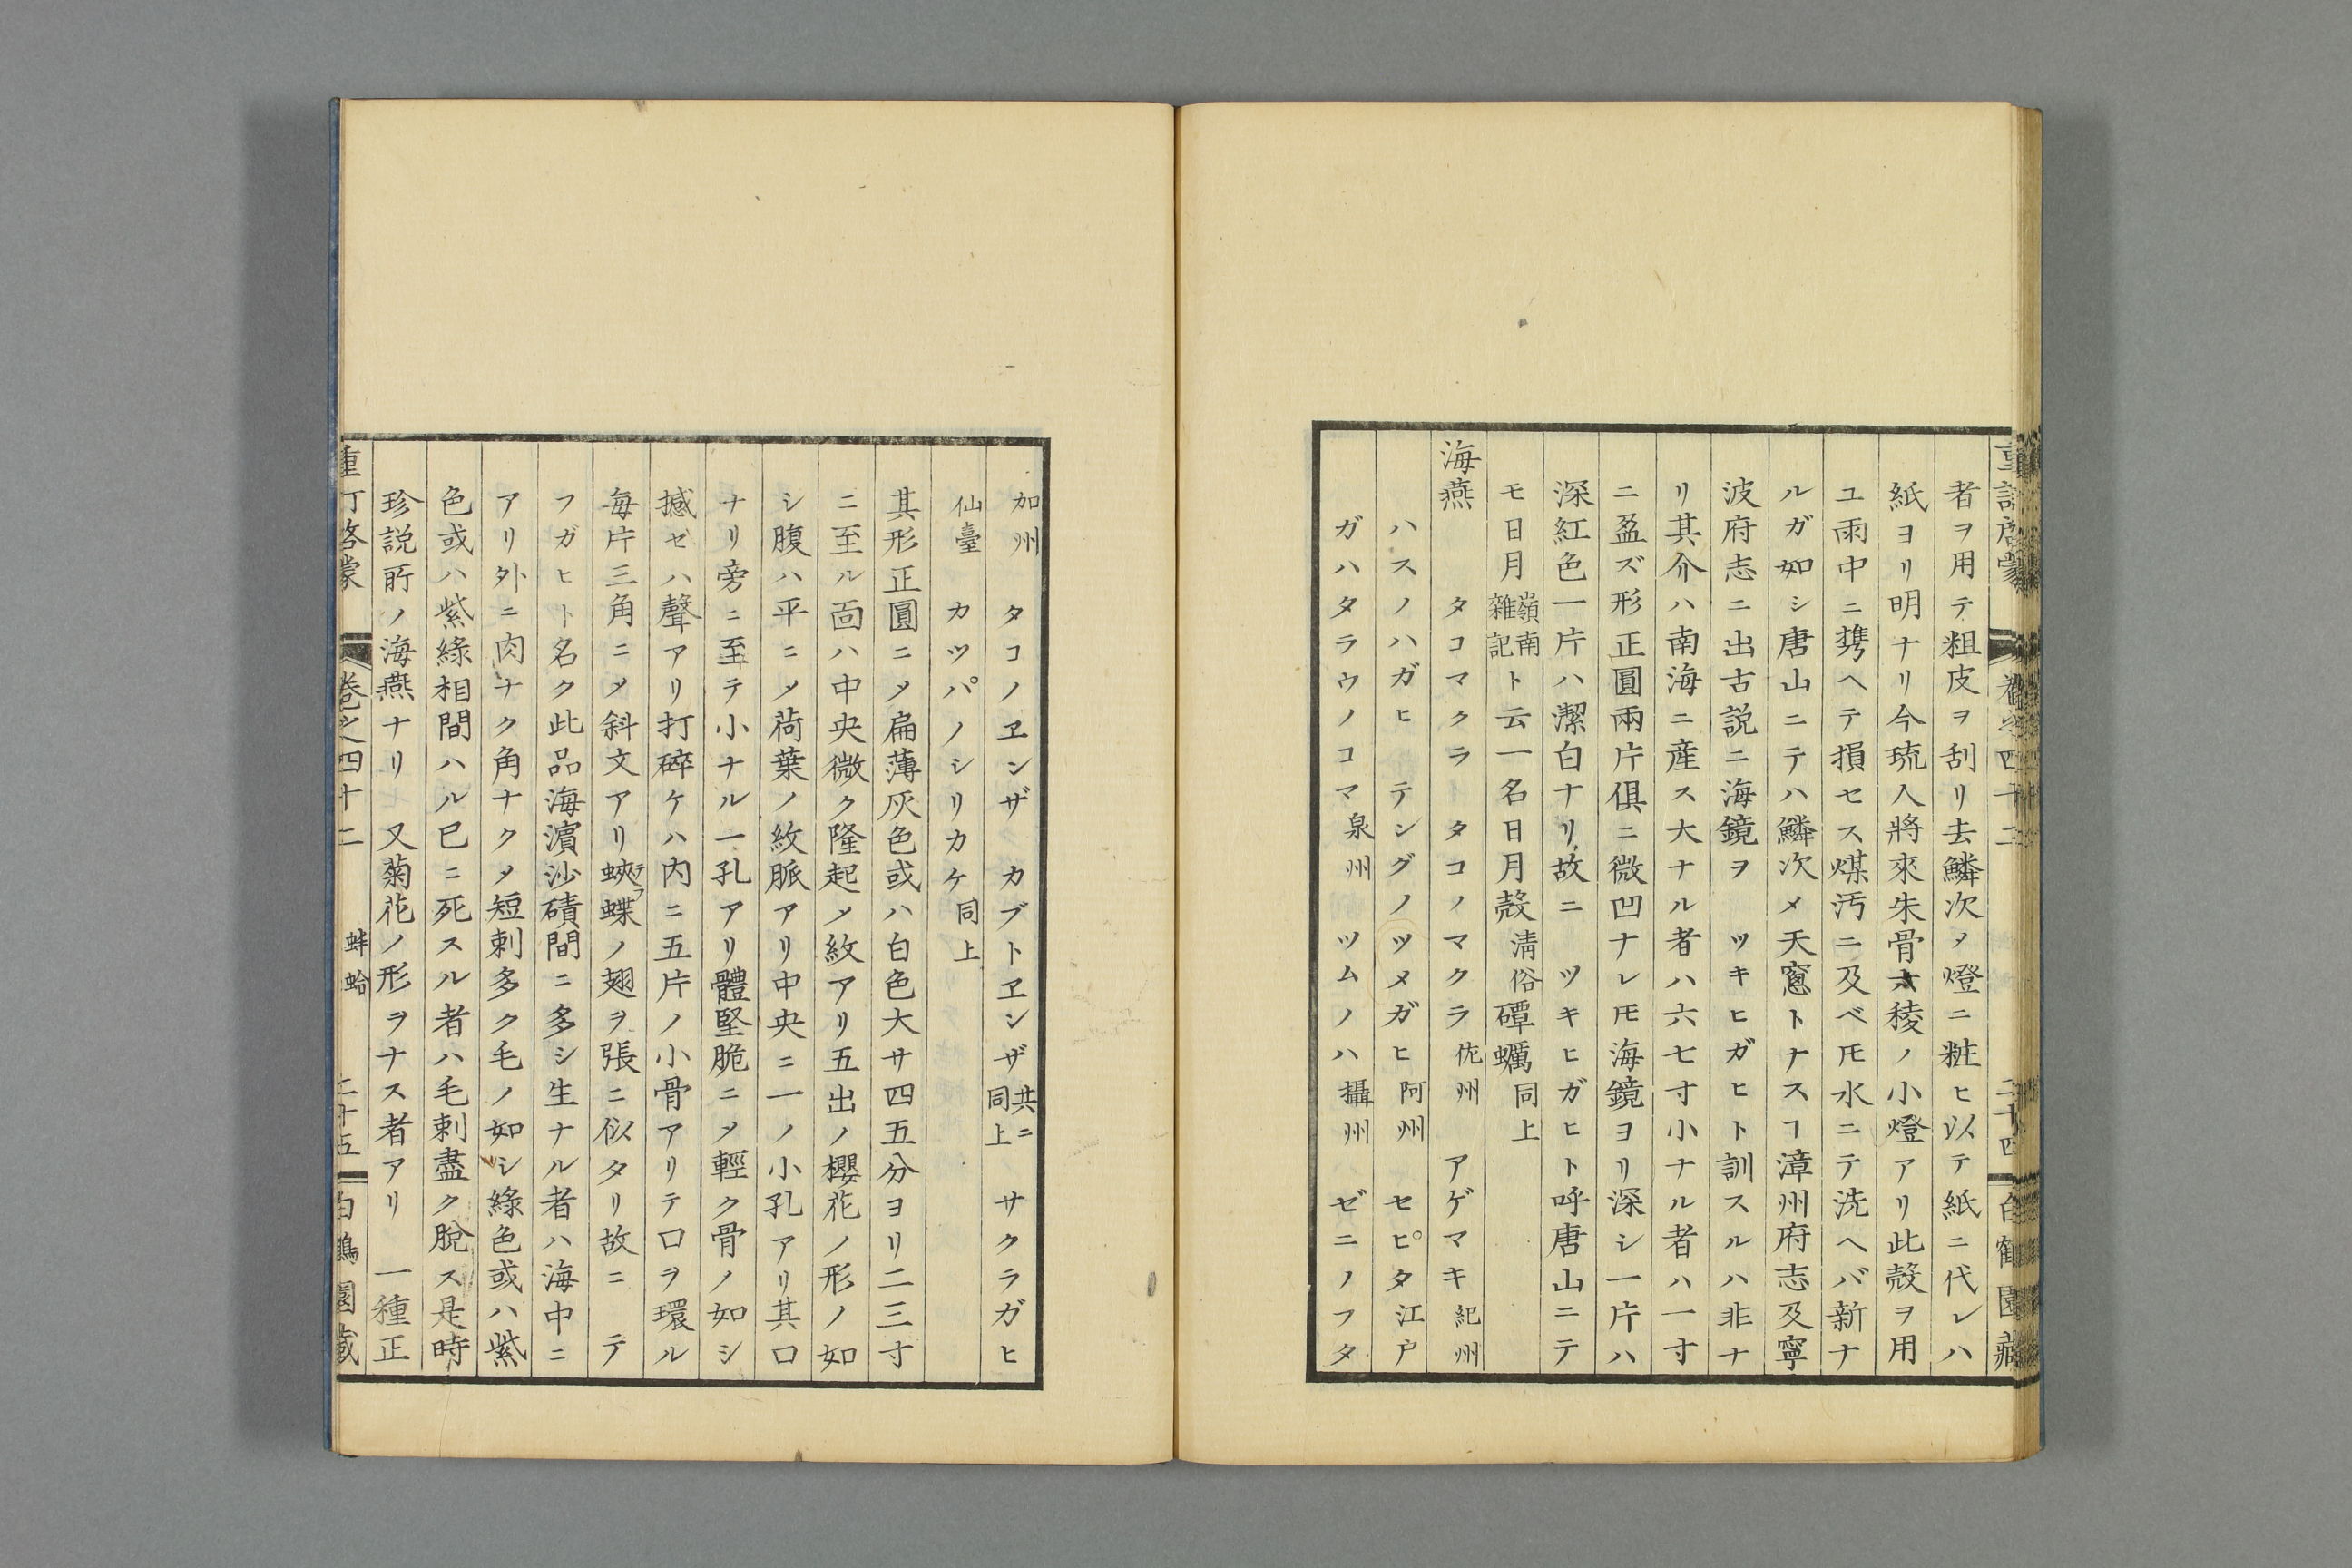 者ヲ用テ粗皮ヲ刮リ去鱗次メ燈ニ粧ヒ以テ紙ニ代レハ
紙ヨリ明ナリ今琉人將來朱骨六稜ノ小燈アリ此殻ヲ用
ユ雨中ニ携ヘテ損セス煤汚ニ及ベ𪜈水ニテ洗ヘバ新ナ
ルガ如シ唐山ニテハ鱗次メ天窻トナスヿ漳州府志及寧
波府志ニ出古説ニ海鏡ヲ ツキヒガヒト訓スルハ非ナ
リ其介ハ南海ニ産ス大ナル者ハ六七寸小ナル者ハ一寸
ニ盈ズ形正圓兩片俱ニ微凹ナレ𪜈海鏡ヨリ深シ一片ハ
深紅色一片ハ潔白ナリ故ニ ツキヒガヒト呼唐山ニテ
モ日月 嶺南雜記 ト云一名日月殻 淸俗 磹蠣 同上
海燕 タコマクラ タコノマクラ 佐州 アゲマキ 紀州
ハスノハガヒ テングノツメガヒ 阿州 セピタ 江戸
ガハタラウノコマ 泉州 ツムノハ 攝州 ゼニノフタ
加州 タコノヱンザ カブトヱンザ 共ニ同上 サクラガヒ
仙臺 カツパノシリカケ 同上
其形正圓ニメ扁薄灰色或ハ白色大サ四五分ヨリ二三寸
ニ至ル面ハ中央微ク隆起メ紋アリ五出ノ櫻花ノ形ノ如
シ腹ハ平ニメ荷葉ノ紋脈アリ中央ニ一ノ小孔アリ其口
ナリ旁ニ至テ小ナル一孔アリ體堅脆ニメ輕ク骨ノ如シ
撼セハ聲アリ打碎ケハ内ニ五片ノ小骨アリテ口ヲ環ル
毎片三角ニメ斜文アリ蛺蝶ノ翅ヲ張ニ似タリ故ニ テ
フガヒト名ク此品海濵沙磧間ニ多シ生ナル者ハ海中ニ
アリ外ニ肉ナク角ナクメ短刺多ク毛ノ如シ綠色或ハ紫
色或ハ紫綠相間ハル已ニ死スル者ハ毛刺盡ク脫ス是時
珍説所ノ海燕ナリ 又菊花ノ形ヲナス者アリ 一種正
重訂啓蒙 卷之四十二 蚌蛤 二十五 白鶴園藏